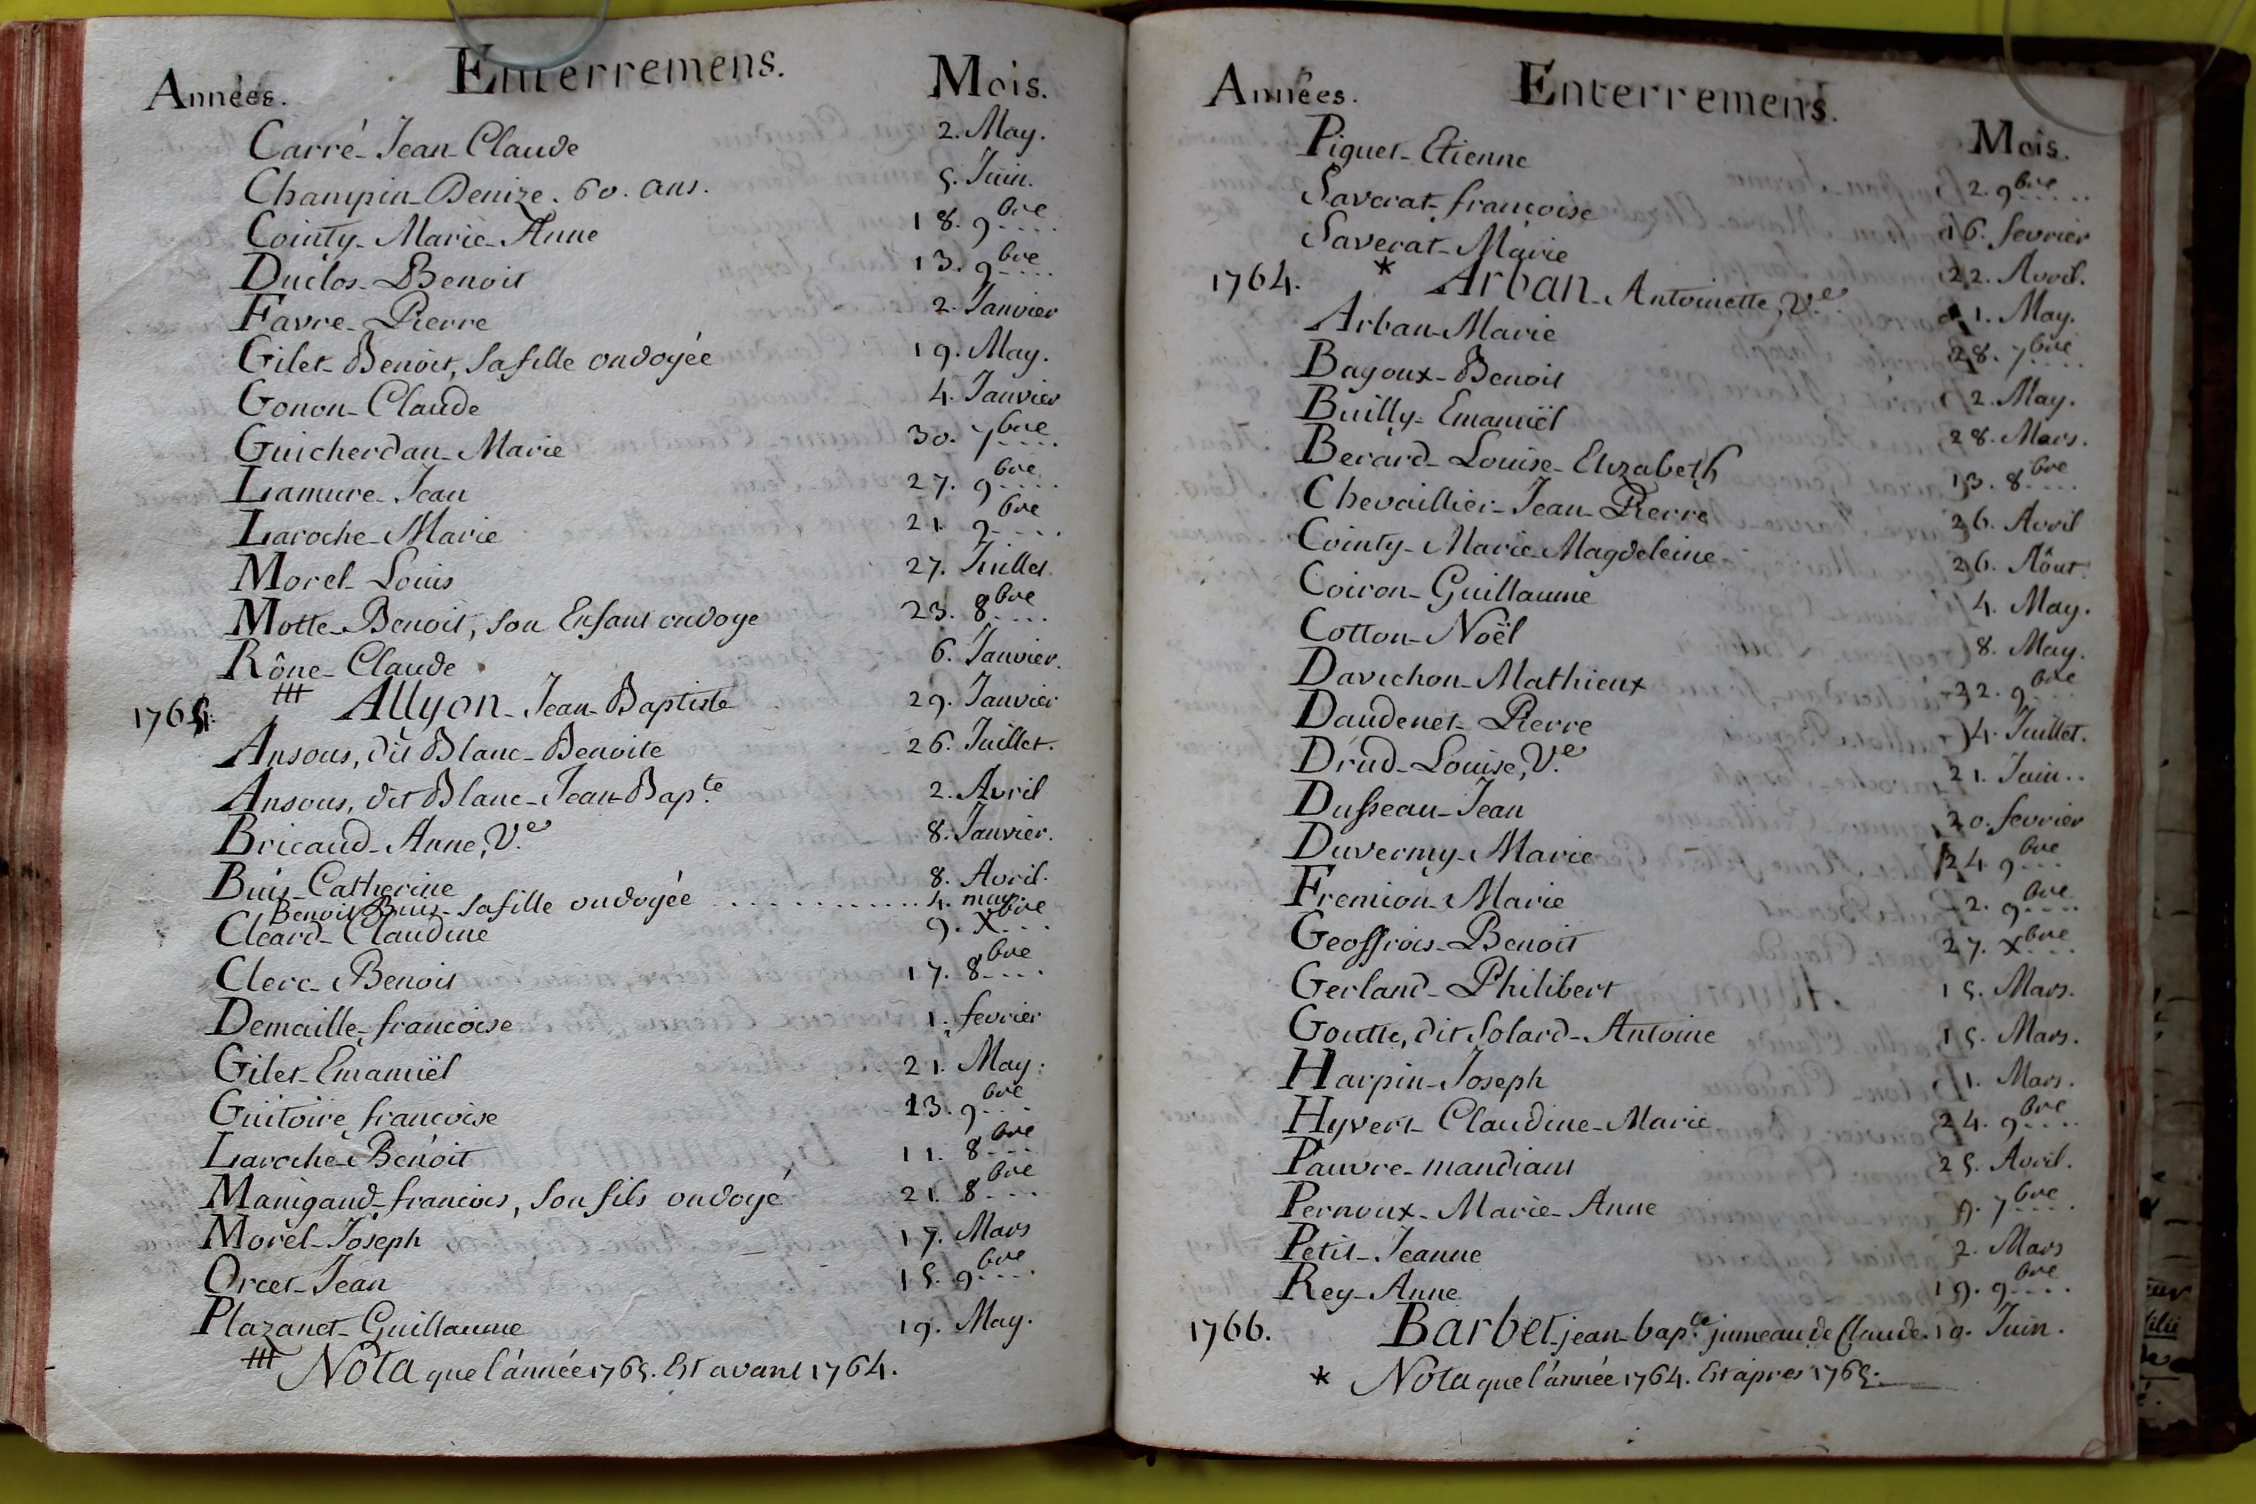 Années. Enterremens. Mois.
Carré- Jean- Claude 2. May.
Champin- Denize. 60. ans. 5. Juin.
Cointy- Marie- Anne 18. 9bre....
Duclos- Benoit 13. 9bre....
Favre- Pierre 2. Janvier
Gilet- Benoit, sa fille ondoyée 19. May.
Gonon- Claude 4. Janvier
Guicherdan- Marie 30. 7bre....
Lamure- Jean 27. 9bre....
Laroche- Marie 21. 9bre....
Morel- Louis 27. Juillet.
Motte- Benoit, son Enfant ondoye 23. 8bre....
Rône- Claude 6. Janvier.
1765. ttt Allyon- Jean- Baptiste 29. Janvier
Ansous, dit Blanc- Benoite 26. Juillet.
Ansous, dit Blanc- Jean- Bap.te 2. Avril
Bricaud- Anne, V.e 8. Janvier.
Buis- Catherine 8. Avril.
Benoit Buis- sa fille ondoyée ............ 4. may.
Cleard- Claudine 9. Xbre....
Clerc- Benoit 17. 8bre....
Demaille- francoise 1. fevrier
Gilet- Emanuël 21. May.
Guitoire- francoise 13. 9bre....
Laroche- Benoit 11. 8bre....
Manigand- francois, son fils ondoyé 21. 8bre....
Morel- Joseph 17. Mars
Orcet- Jean 15. 9bre....
Plazanet- Guillaume 19. May.
ttt Nota que l'année 1765. Est avant 1764.
Années. Enterremens. Mois.
Piguet- Etienne 2. 9bre.....
Saverat- francoise 16. fevrier
Saverat- Marie 22. Avril.
1764. * Arban- Antoinette, V.e 1. May.
Arban- Marie 28. 7bre....
Bagoux- Benoit 2. May.
Builly- Emanuël 28. Mars.
Berard- Louise- Elizabeth 13. 8bre....
Chevaillier- Jean- Pierre 26. Avril
Cointy- Marie- Magdeleine 26. Aôut.
Coiron- Guillaume 4. May.
Cotton- Noël 8. May.
Davichon- Mathieux 22. 9bre...
Daudenet- Pierre 4. Juillet.
Drud- Louise, V.e 21. Juin..
Dusseau- Jean 20. fevrier
Duvermy- Marie 24. 9bre...
Fremion- Marie 2. 9bre....
Geoffrois- Benoit 27. Xbre...
Gerland- Philibert 15. Mars.
Goutte, dit Solard- Antoine 15. Mars.
Harpin- Joseph 1. Mars.
Hyvert- Claudine- Marie 24. 9bre....
Pauvre- mandiant 25. Avril.
Pernoux- Marie- Anne 9. 7bre....
Petit- Jeanne 2. Mars
Rey- Anne 19. 9bre....
1766. Barbet- jean- bap.te jumeau de Claude. 19. Juin.
* Nota que l'année 1764. Est apres 1765.